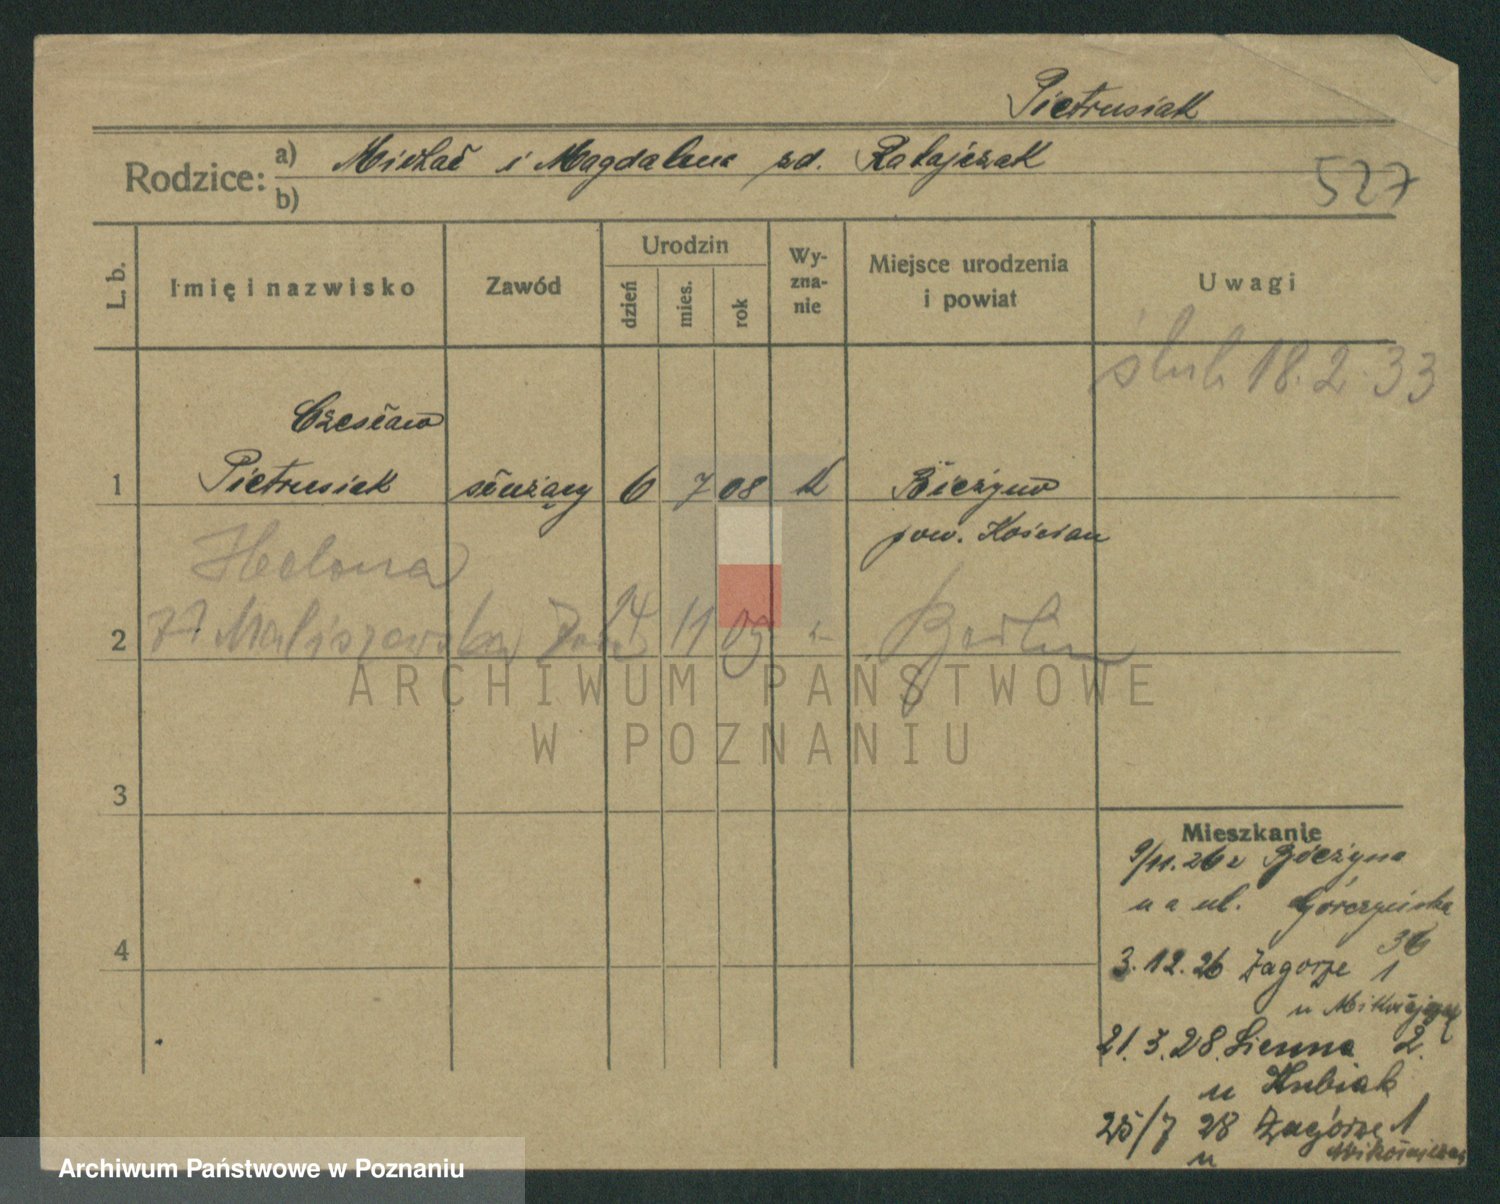 Pietrusiak
Rodzice: a) Michał i Magdalena zd. Ratajczak
b)
527
L. b.
Imię i nazwisko
Zawód
Urodzin
dzień
mies.
rok
Wy-
zna-
nie
Miejsce urodzenia
i powiat
Uwagi
ślub 18.2.33
Czesław
1 Pietrusiak służący 6 7 08 k Bieżyno
pow. Kościan
Helena
2 Maliszewska 14 11 05 Berlin
ARCHIWUM PAŃSTWOWE
W POZNANIU
3
4
Mieszkanie
9/11.26 z Bieżyna
na ul. Górczyńska
36
3.12.26 Zagorze 1
u
21.3.28 Sienna 2.
u Kubiak
25/7 28 Zagórze 1
u
Archiwum Państwowe w Poznaniu